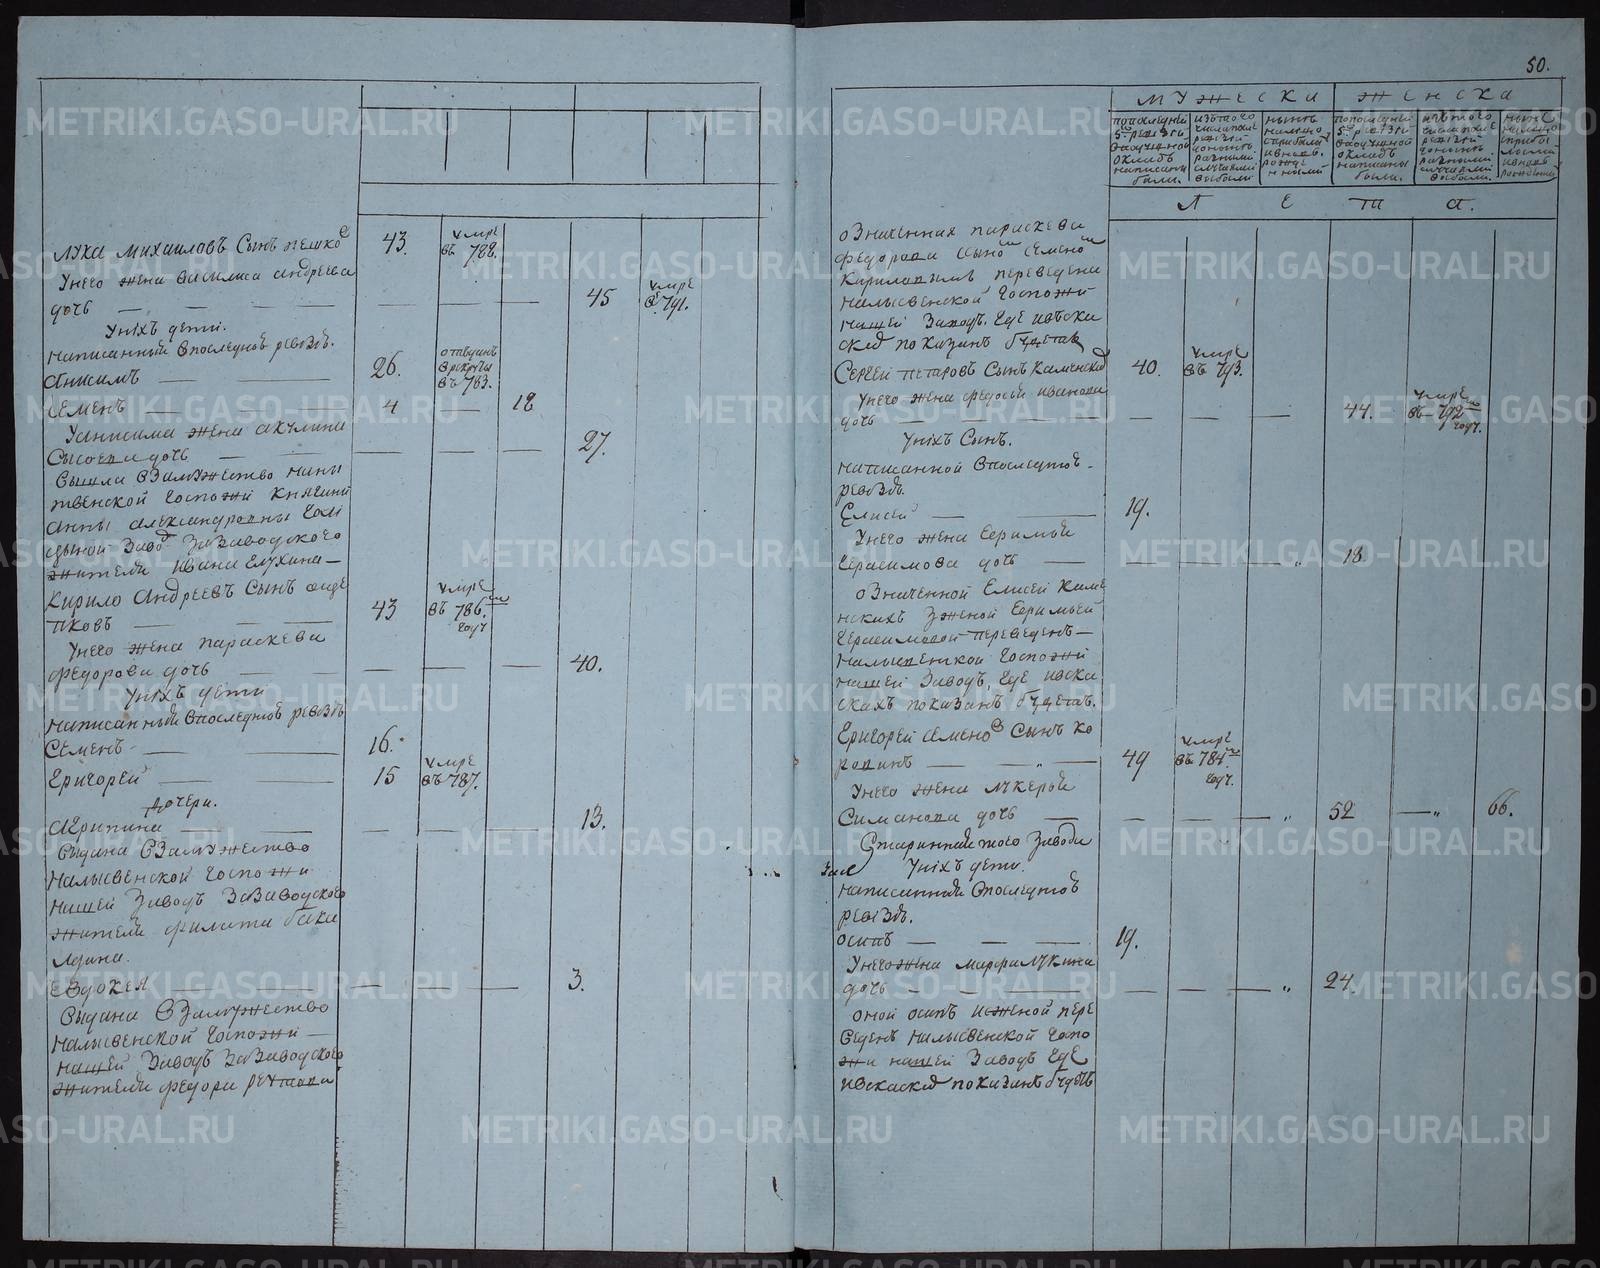 Лука Михаиловъ сынъ пешко 43. умре въ 788.
Унего жена василиса андреева
дочь — — — — 45 умре в 791.
Унихъ дети.
написанныи впоследнои ревизъ.
Анисимъ — — 26. отъданъ врекруты въ 783.
Семенъ — — 4 — 18
Уанисима жена акулина
Сысоева дочь — — — — 27.
Вышла взамужество наны
твенской госпожи княгини
анны александровны голи
цыной завод заводского
жителя ивана глухина —
Кирило Андреевъ сынъ
пковъ — — 43 умре въ 786. году
Унего жена параскева
федорова дочь — — — — 40.
Унихъ дети
написанныи впоследнои ревизъ
Семенъ — — 16.
Григореи — — 15 умре въ 787.
дочери.
Агрипина — — — — — 13.
выдана взамужество
налысвенской госпожи
нашей заводъ зазаводского
жителя филата бака
лдина.
Евдокея — — — — 3.
выдана взамужество
налысвенской госпожи —
нашей заводъ зазаводского
жителя федора
50.
МУЖЕСКА ЖЕНСКА
попоследней 5 ревизги вподушной окладъ написаны были.
изътого числа после ревизги доныне разными случаями выбыли
ныне налицо спрыбылыми и вновь рожденными
попоследней 5 ревизги вподушной окладъ написаны были.
изътого числа после ревизги доныне разными случаями выбыли.
ныне налицо прибылыми и вновь рожденными
Л Е Т А.
означенная параскева
федорова сыном семеном
кирилавымъ переведена
налысвенской госпожи
нашей заводъ. где ивска
ске показанъ будетъ
Сергей петровъ сынъ каменскис 40. умре въ 793.
Унего жена федосья иванова
дочь — — — — 44. умре въ 792 году.
Унихъ сынъ.
написанной впоследнои
ревизъ.
Елисей — — 19.
Унего жена Ггримья
герасимова дочь — — — — 18
означенной Елисей каме
нскихъ зженой Ггримьей
герасимовой переведенъ —
налысвенской госпожи
нашей заводъ, где ивска
скахъ показанъ будетъ.
Григорей семено сынъ ко
ропинъ — — 49 умре въ 784 году.
Унего жена лукерья
Симанова дочь — — — — 52 — 66.
Старинная того завода
Унихъ дети.
написанныи впоследнои
ревизъ.
осипъ — — — 19.
Унего жена марфа лукина
дочь — — — — 24.
оной осипъ исженой пере
веденъ налысвенской госпо
жи нашей заводъ где
ивскаске показанъ будетъ
METRIKI.GASO-URAL.RU